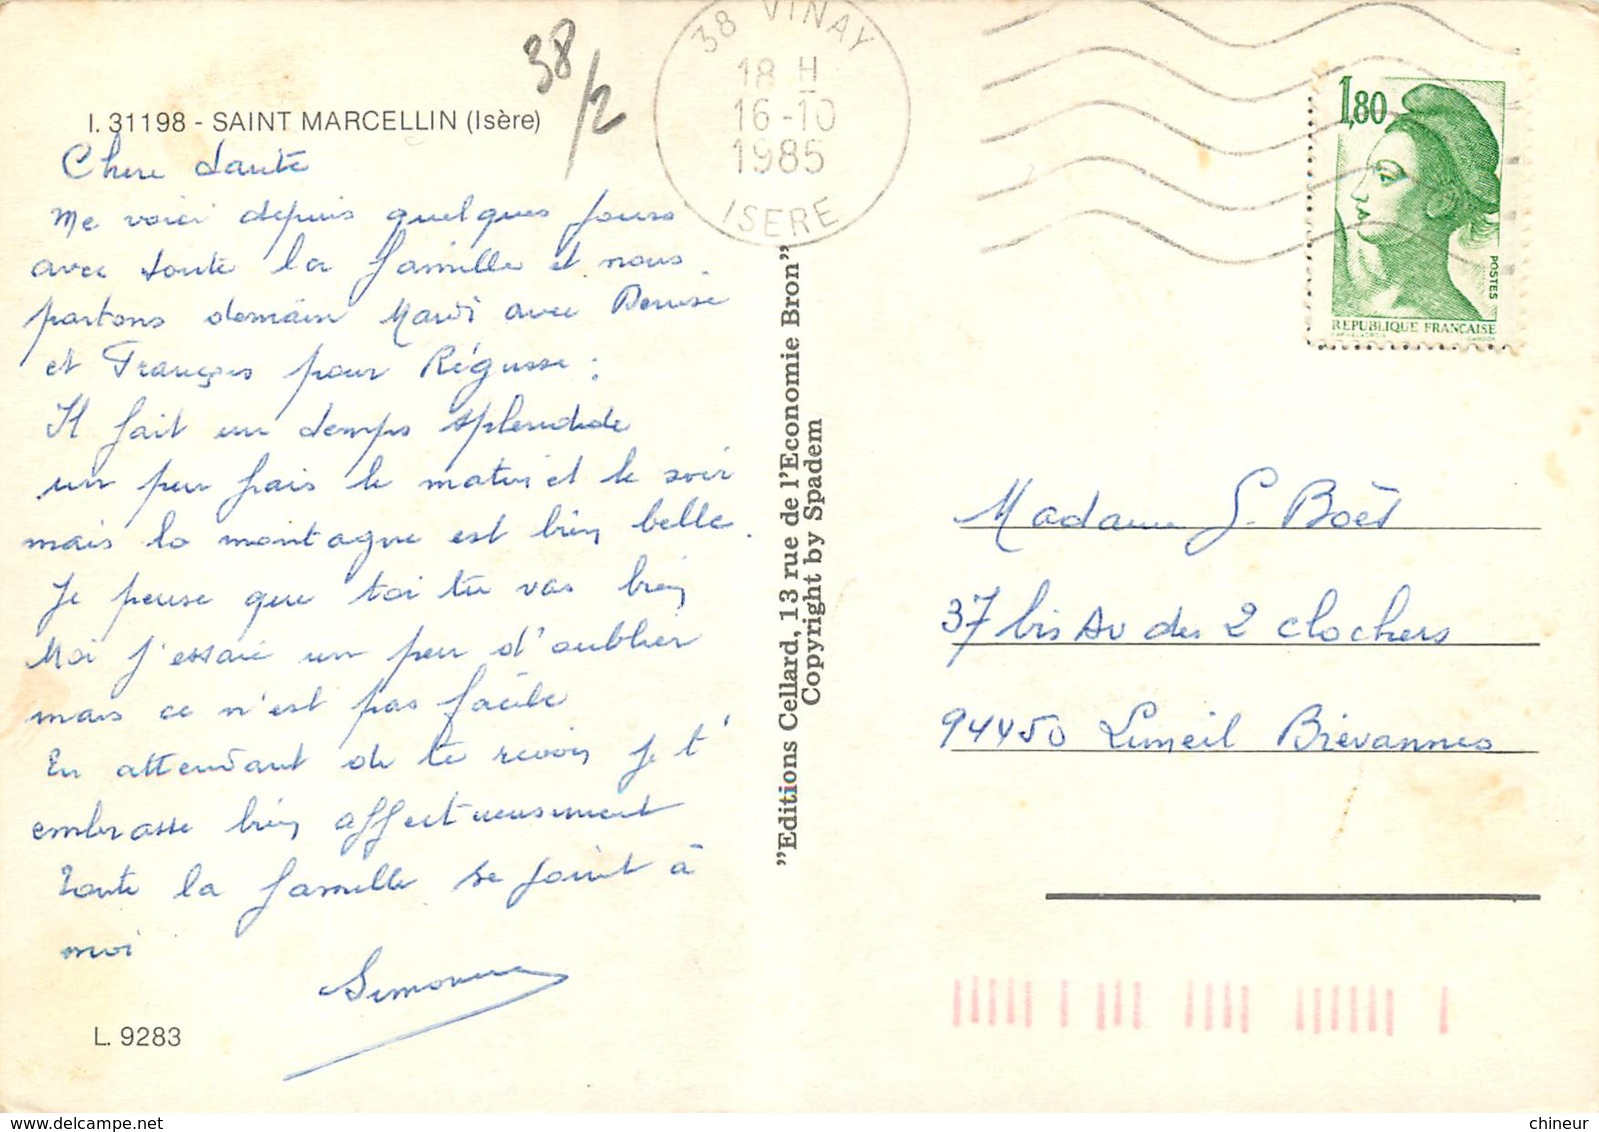 38/2
38 VINAY
18 H
16-10
1985
ISERE
1,80
POSTES
REPUBLIQUE FRANCAISE
I. 31198 - SAINT MARCELLIN (Isère)
Chere tante
Me voici depuis quelques jours
avec toute la famille et nous
partons demain Mardi avec Denise
et François pour Régusse.
Il fait un temps splendide
un peu frais le matin et le soir
mais la montagne est bien belle.
Je pense que toi tu vas bien
Moi j'essaie un peu d'oublier
mais ce n'est pas facile
En attendant de te revoir je t'
embrasse bien affectueusement
Toute la famille se joint à
moi
Simonne
L. 9283
"Editions Cellard, 13 rue de l'Economie Bron"
Copyright by Spadem
Madame G. Boët
37 bis Av des 2 clochers
94450 Limeil Brévannes
chineur